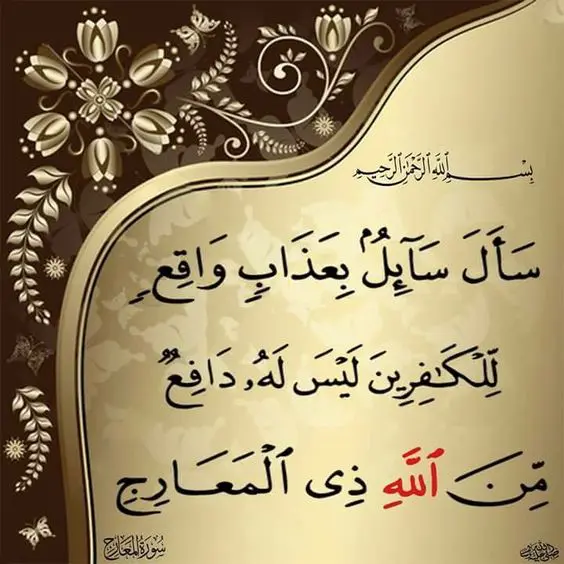 بِسْمِ ٱللَّهِ ٱلرَّحْمَٰنِ ٱلرَّحِيمِ
سَأَلَ سَآئِلٌۢ بِعَذَابٍ وَاقِعٍ
لِّلْكَٰفِرِينَ لَيْسَ لَهُۥ دَافِعٌ
مِّنَ ٱللَّهِ ذِى ٱلْمَعَارِجِ
سُورَةُ المَعَارِج